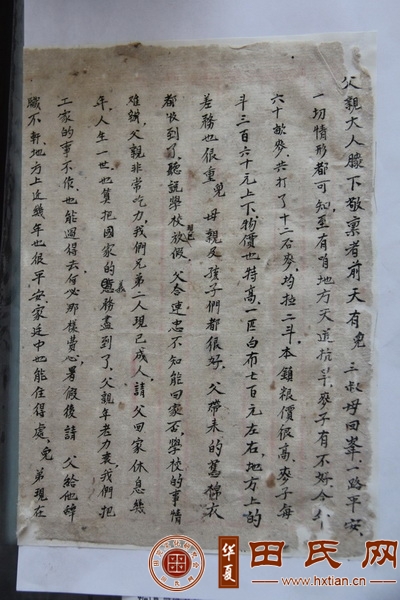 父親大人膝下敬禀者前天有兒 三叔母回家、一路平安、
一切情形都可知至有咱地方天道抗旱、麥子有不好今年
六十畝麥、共打了十二石麥、均拉二斗、本鎮粮價很高、麥子每
斗三百六十元上下、物價也特高一匹白布七百元左右、地方上的
差務也很重、兒 母親及孩子們都很好、父帶来的舊棉衣
都收到了、聽説學校現已放假、父令速忠不知能回家否、學校的事情
难辦、父親非常吃力、我們兄弟二人現已成人、請父回家休息幾
年、人生一世、也算把國家的義務盡到了、父親年老力衰、我們把
工家的事不作、也能過得去、何必那樣費心、暑假後請 父給他辞
職不幹、地方上近幾年也很平安、家廷中也能住得處、兒 弟現在
华夏
田氏网
www.hxtian.cn